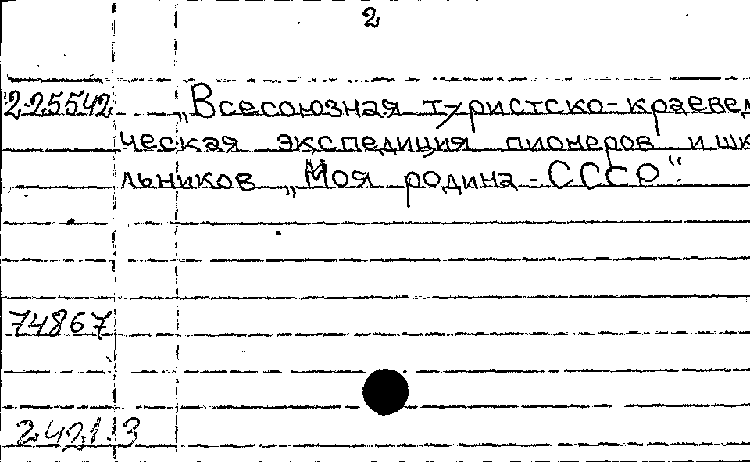 2
225542 „Всесоюзная туристско-краевед
ческая экспедиция пионеров и шк
льников „Моя родина - СССР".
74867
2421.3